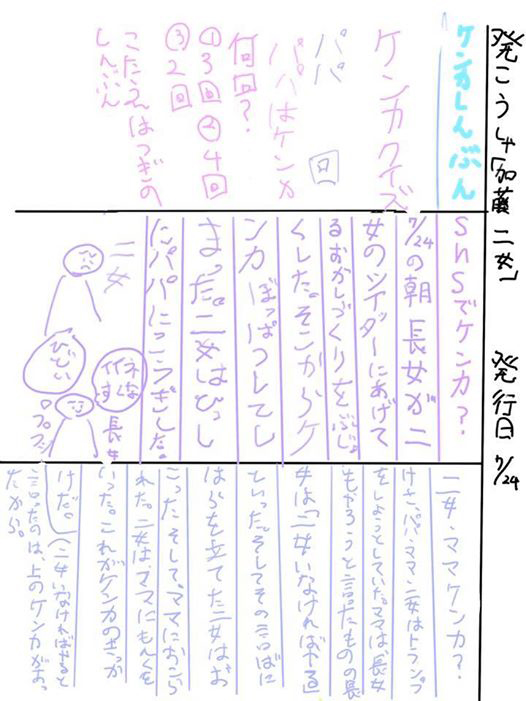 発こう人「加藤 二女」 発行日 7/24
ケンカしんぶん
ケンカクイズ
パパ 回
パパはケンカ
何回?
①3回②4回
③2回
こたえはつぎの
しんぶん
SnSでケンカ?
7/24の朝長女が二
女のツイッターにあげて
るおかしづくりをぶじょ
くした。そこからケ
ンカぼっぱつしてし
まった。二女はひっし
にパパにつこうつぎした。
二女
ひどい
イイネなくす
長女
プププ
二女・ママケンカ?
けさ、パパ・ママ・二女はトランプ
をしようとしていた。ママは、長女
もやろうと言ったものの長
女は「二女いなければやる」
といった。そしてその言ばに
はらを立てた二女はお
こった そして、ママにおこら
れた。二女は、ママにもんくを
いった。これがケンカのきっか
けだ。(二女いなければやると
言ったのは、上のケンカがあっ
たから。